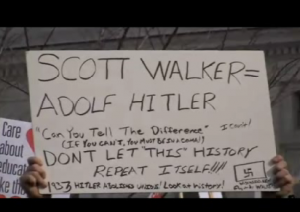 SCOTT WALKER=
ADOLF HITLER
"Can You Tell The Difference"
(IF YOU CAN'T, YOU MUST BE IN A COMA!)
DON'T LET "THIS" HISTORY
REPEAT ITSELF!!!!
1933 HITLER ABOLISHED UNIONS! Look at History!
Care
about
educat
ke th